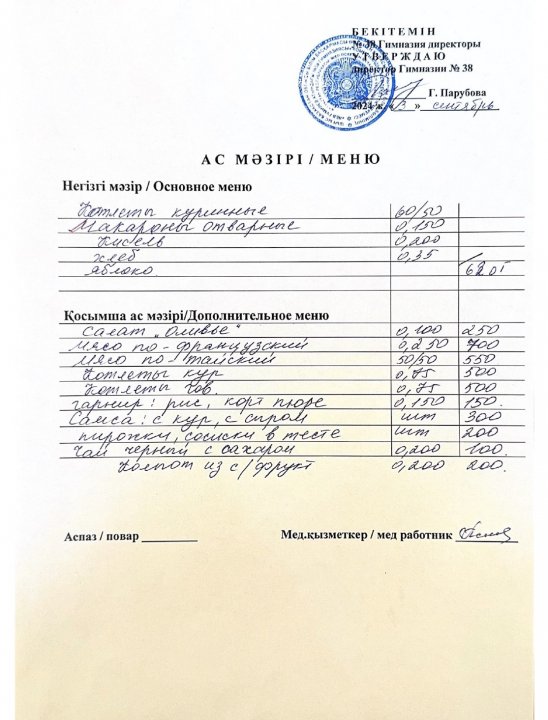 БЕКІТЕМІН
№ 38 Гимназия директоры
УТВЕРЖДАЮ
директор Гимназии № 38
Г. Парубова
2024 ж. «13» сентябрь
АС МӘЗІРІ / МЕНЮ
Негізгі мәзір / Основное меню
Котлеты куринные 60/50
Макароны отварные 0,150
Кисель 0,200
хлеб 0,35
яблоко
Қосымша ас мәзірі/Дополнительное меню
Салат „Оливье" 0,100 250
Мясо по-французский 0,250 700
Мясо по-тайский 50/50 550
Котлеты кур 0,75 500
Котлеты гов. 0,75 500
гарнир: рис, карт пюре 0,150 150.
Самса: с кур, с сыром шт 300
пирожки, сосиски в тесте шт 200
Чай черный с сахаром 0,200 100.
Компот из с/фрукт 0,200 200.
Аспаз / повар
Мед.қызметкер / мед работник